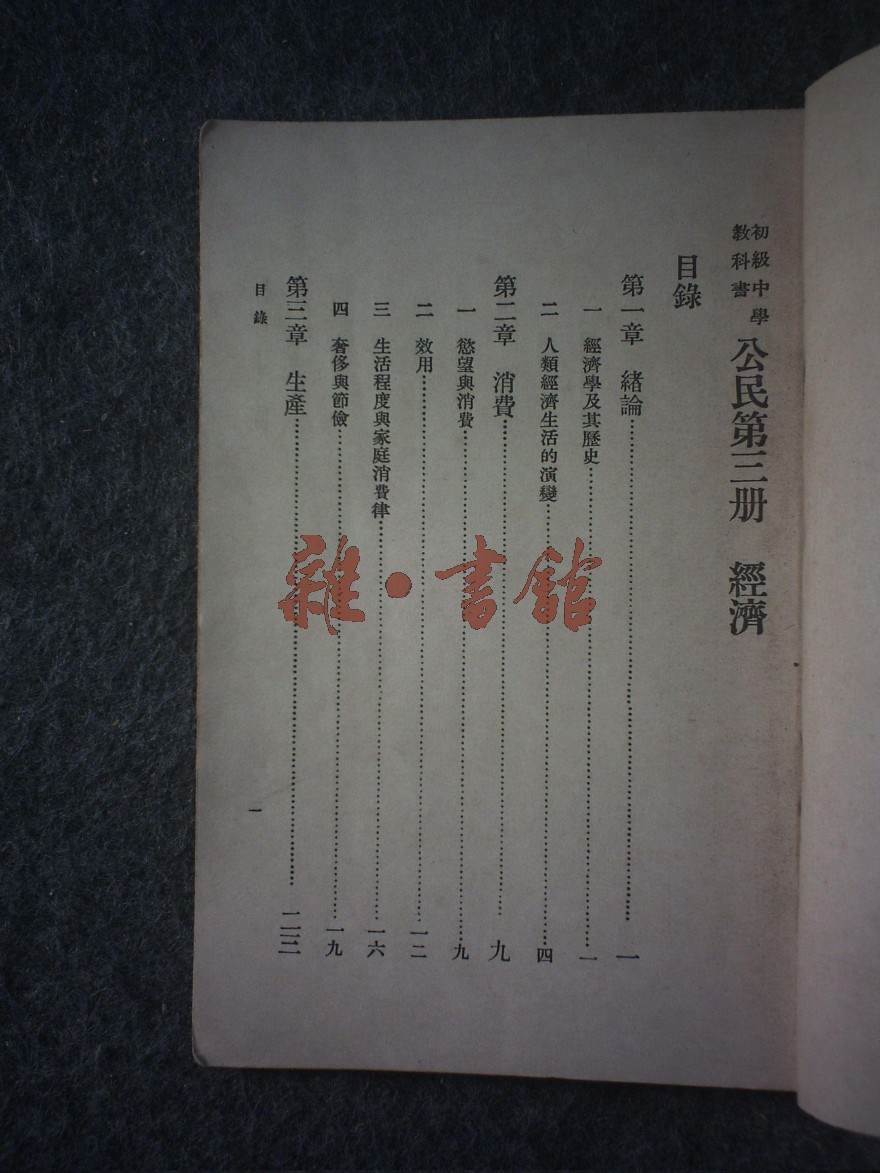 初級中學
教科書
公民第三册　經濟
目錄
第一章　緒論……一
一　經濟學及其歷史……一
二　人類經濟生活的演變……四
第二章　消費……九
一　慾望與消費……九
二　效用……一二
三　生活程度與家庭消費律……一六
四　奢侈與節儉……一九
第三章　生產……二三
目錄
一
雜·書館